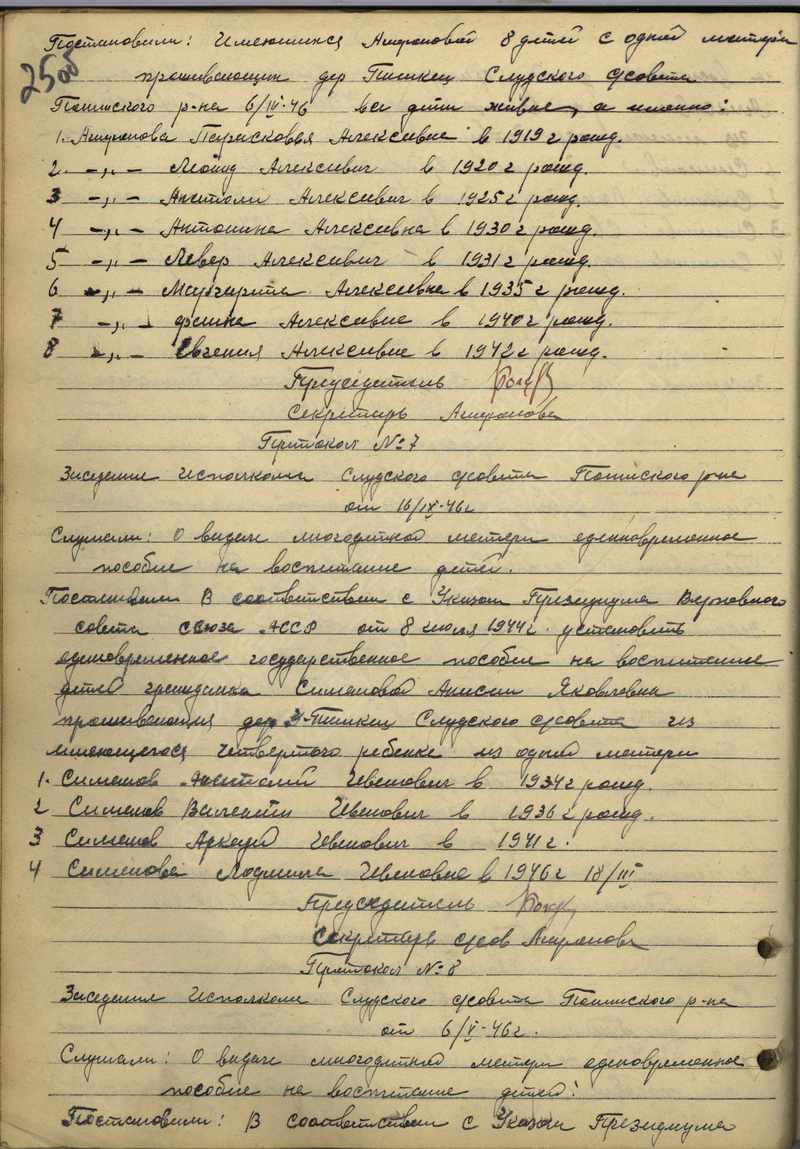 25об
Постановили: Имеющихся Агиповой 8 детей с одной матери
проживающих дер Слудского с/совета
р-на 6/III-46 все дети живые, а именно:
1. Парасковья Алексеевна в 1919 г рожд.
2. -„- Леонид Алексеевич в 1920 г рожд.
3 -„- Анатоли Алексеевич в 1925 г рожд.
4 -„- Антонина Алексеевна в 1930 г рожд.
5 -„- Алексеевич в 1931 г рожд.
6 -„- Маргарита Алексеевна в 1935 г рожд.
7 -„- Фаина Алексеевна в 1940 г рожд.
8 -„- Евгения Алексеевна в 1942 г рожд.
Председатель
Секретарь
Протокол № 7
Заседание Исполкома Слудского с/совета р-на
от 16/IV-46 г
Слушали: О видаче многодетной матери единовременное
пособие на воспитание детей.
Постановили В соответствии с Указом Президиума Верховного
совета союза ССР от 8 июля 1944 г. установить
единовременное государственное пособие на воспитание
детей гражданка Симановой Анисии Яковлевна
проживающая дер Слудского с/совета из
имеющегося четвертого ребенка из одной матери
1. Симанов Анатолий Иванович в 1934 г рожд.
2 Симанов Валенти Иванович в 1936 г рожд.
3 Симанов Аркади Иванович в 1941 г.
4 Симанова Людмила Ивановна в 1946 г 18/III
Председатель
Секретарь с/сов
Протокол № 8
Заседания Исполкома Слудского с/совета р-на
от 6/V-46 г.
Слушали: О видаче многодетной матери единовременное
пособие на воспитание детей:
Постановили: В соответствии с Указом Президиума